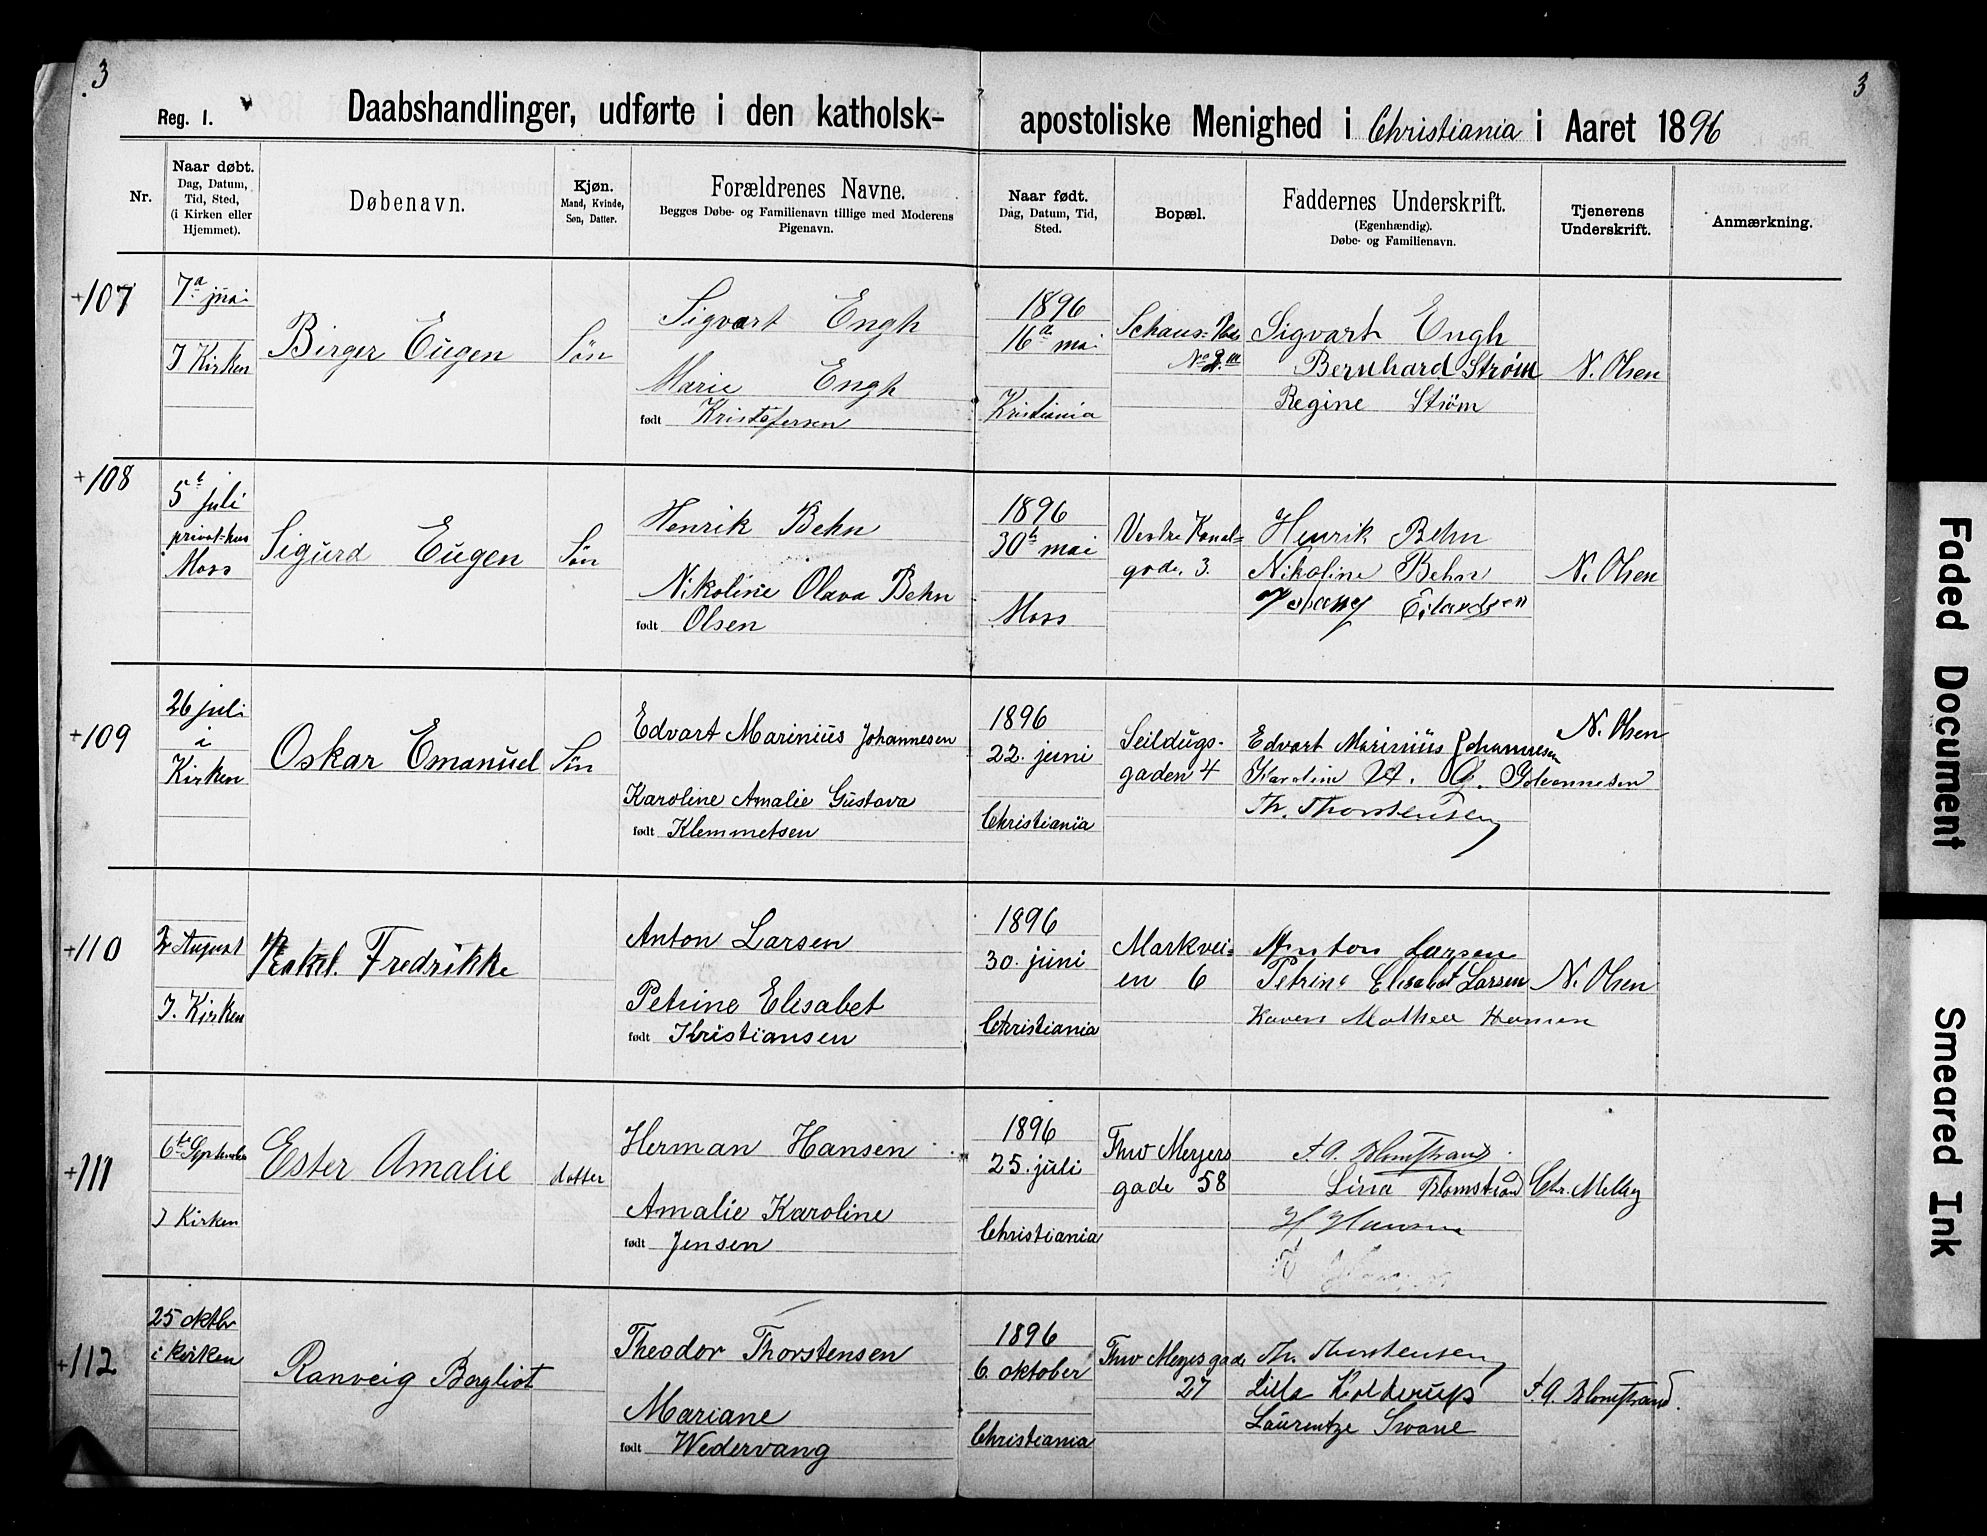 3
3
Reg. 1.
Daabshandlinger, udførte i den katholsk-
apostoliske Menighed i Christiania i Aaret 1896
Nr.
Naar døbt.
Dag, Datum,
Tid, Sted,
(i Kirken eller
Hjemmet).
Døbenavn.
Kjøn.
Mand, Kvinde,
Søn, Datter.
Forældrenes Navne.
Begges Døbe- og Familienavn tillige med Moderens
Pigenavn.
Naar født.
Dag, Datum, Tid,
Sted.
Bopæl.
Faddernes Underskrift.
(Egenhændig).
Døbe- og Familienavn.
Tjenerens
Underskrift.
Anmærkning.
+107
7a juni
I Kirken
Birger Eugen
Søn
Sigvart Engh
Marie Engh
født Kristofersen
1896
16a mai
Kristiania
Schaus-
Sigvart Engh
Bernhard Strøm
Regine Strøm
N. Olsen
+108
5t juli
privat-hus
Moss
Sigurd Eugen
Søn
Henrik Behn
Nikoline Olava Behn
født Olsen
1896
30t mai
Moss
Vestre Kanal=
gade. 3.
Henrik Behn
Nikoline Behn
N. Olsen
+109
26 juli
i
Kirken
Oskar Emanuel
Søn
Edvart Marinius Johannesen
Karoline Amalie Gustava
født Klemmetsen
1896
22. juni
Christiania
Seildugs-
gaden 4
Edvart Marinius Johannesen
Karoline A. G. Johannesen
Th. Thorstensen
N. Olsen
+110
2 August
I. Kirken
Rakel. Fredrikke
Anton Larsen
Petrine Elisabet
født Kristiansen
1896
30. juni
Christiania
Markvei=
en 6
Anton Larsen
Petrine Elisabet Larsen
Karen Mathea Hansen
N. Olsen
+111
6te September
I Kirken
Ester Amalie
datter
Herman Hansen
Amalie Karoline
født Jensen
1896
25. juli
Christiania
Thv Meyers
gade 58
F. A. Blomstrand
Lina Blomstrand
H Hansen
Chr. Melby
+112
25 oktbr
i kirken
Ranveig Bergliot
Theodor Thorstensen
Mariane
født Wedervang
1896
6. oktober
Christiania
Thv Meyes gade
27
Th. Thorstensen
Lilla Kolderup
Laurentze Svane
F. A. Blomstrand.
Faded Document
Smeared Ink